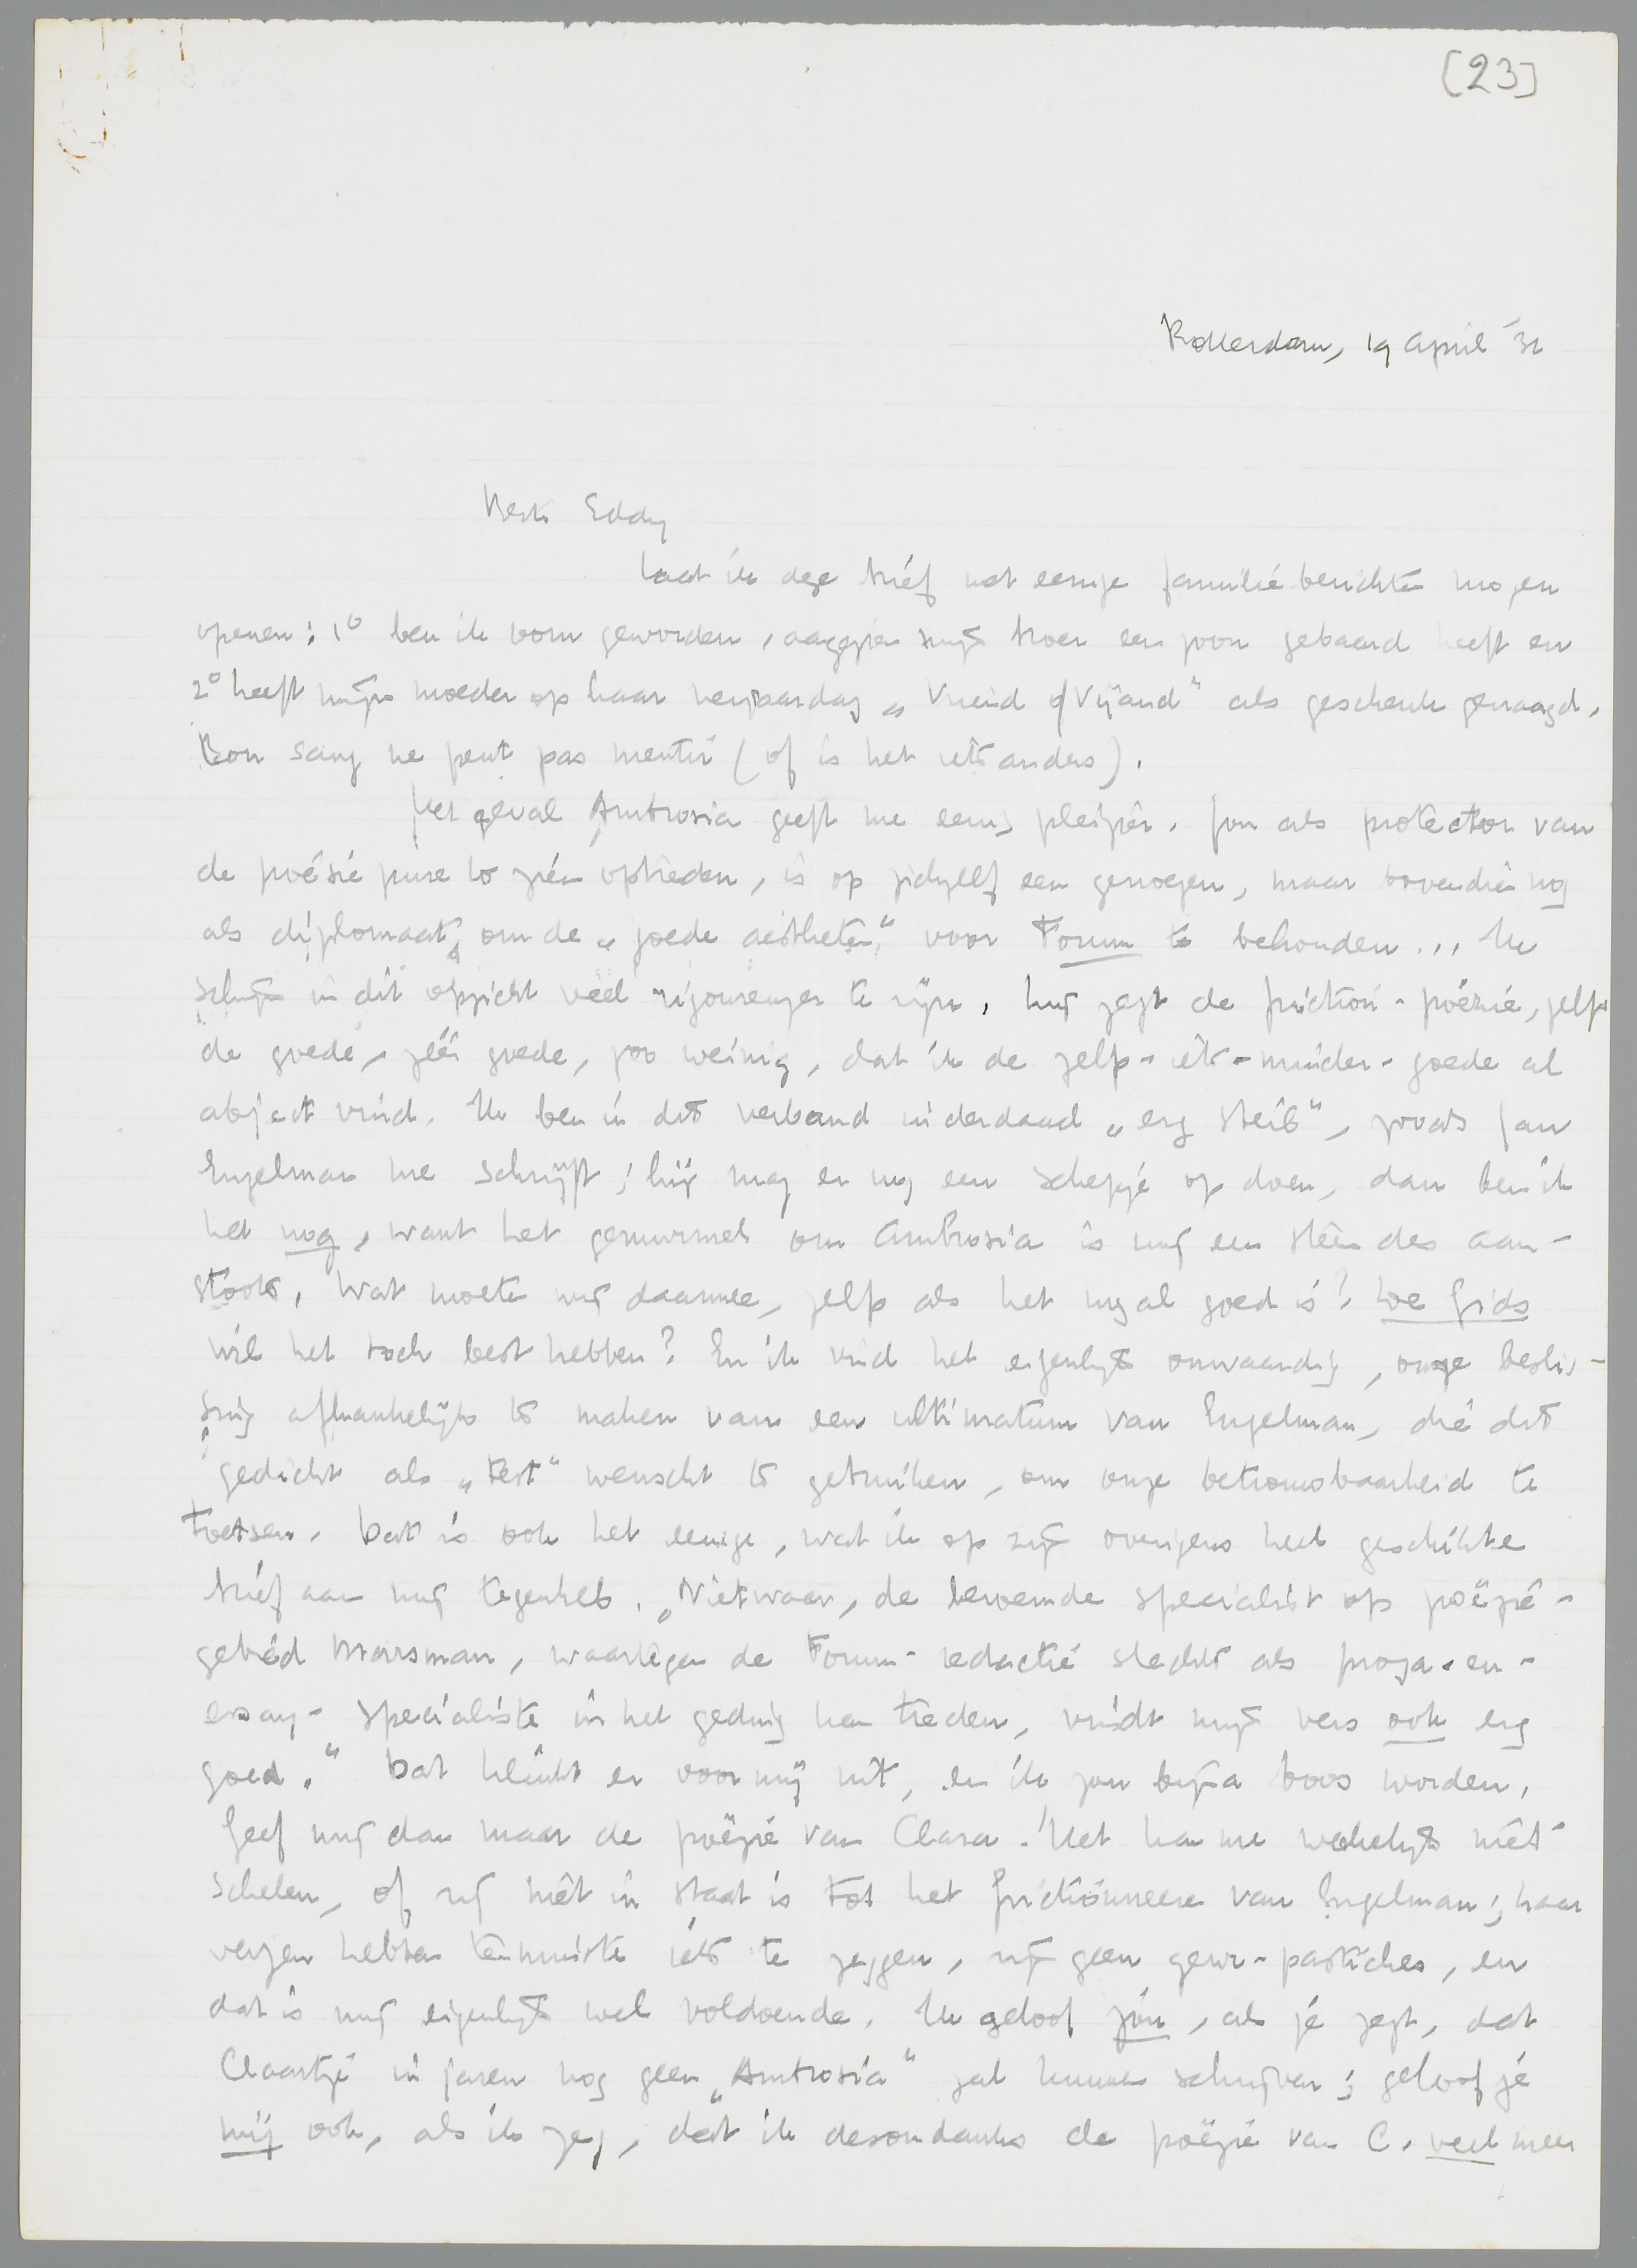 [23]
Rotterdam, 19 April '32
Beste Eddy
Laat ik deze brief met eenige familieberichten mogen
openen: 1º ben ik oom geworden, aangezien mijn broer een zoon gebaard heeft en
2º heeft mijn moeder op haar verjaardag „Vriend of Vijand" als geschenk gevraagd.
Bon sang ne peut pas mentir (of is het iets anders).
Het geval Ambrosia geeft me eenig pleizier. Jou als protector van
de poésie pure te zien optreden, is op zichzelf een genoegen, maar bovendien nog
als diplomaat, om de „goede aestheten" voor Forum te behouden... Ik
schijn in dit opzicht veel rigoureuzer te zijn. Mij zegt de friction-poëzie, zelfs
de goede, zéér goede, zoo weinig, dat ik de zelfs-iets-minder-goede al
abject vind. Ik ben in dit verband inderdaad „erg steil", zooals Jan
Engelman me schrijft; hij mag er nog een schepje op doen, dan ben ik
het nog, want het gemurmel om Ambrosia is mij een steen des aan-
stoots. Wat moeten wij daarmee, zelfs als het nogal goed is? De Gids
wil het toch best hebben? En ik vind het eigenlijk onwaardig, onze beslis-
sing afhankelijk te maken van een ultimatum van Engelman, die dit
gedicht als „test" wenscht te gebruiken, om onze betrouwbaarheid te
toetsen. Dat is ook het eenige, wat ik op zijn overigens heel geschikte
brief aan mij tegenheb. „Nietwaar, de beroemde specialist op poëzie-
gebied Marsman, waartegen de Forum-redactie slechts als proza-en-
essay-specialisten in het geding kan treden, vindt mijn vers ook erg
goed." Dat klinkt er voor mij uit, en ik zou bijna boos worden.
Geef mij dan maar de poëzie van Clara! Het kan me werkelijk niet
schelen, of zij niet in staat is tot het frictionneeren van Engelman; haar
verzen hebben tenminste iets te zeggen, zijn geen pastiches, en
dat is mij eigenlijk wel voldoende. Ik geloof jou, als je zegt, dat
Claartje in jaren nog geen „Ambrosia" zal kunnen schrijven; geloof je
mij ook, als ik zeg, dat ik desondanks de poëzie van C. veel meer